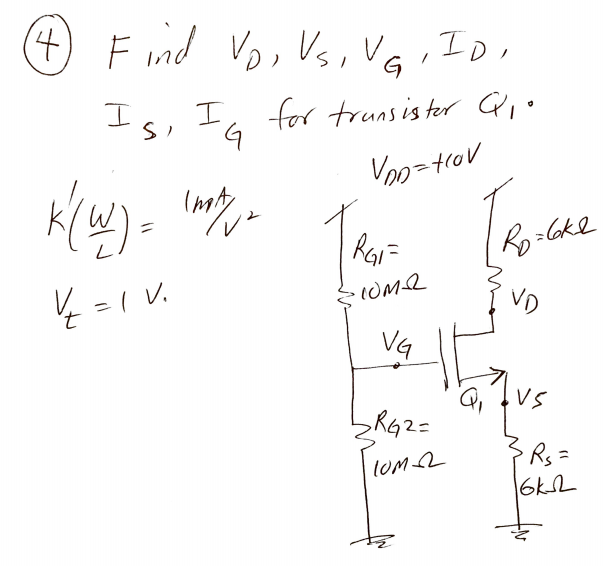 ④ Find V_D, V_S, V_G, I_D,
I_S, I_G for transistor Q_1.
V_DD=+10V
K'(W/L) = 1mA/V²
V_t = 1 V.
R_G1=
10MΩ
R_D=6kΩ
V_D
V_G
Q_1
V_S
R_G2=
10MΩ
R_S=
6kΩ